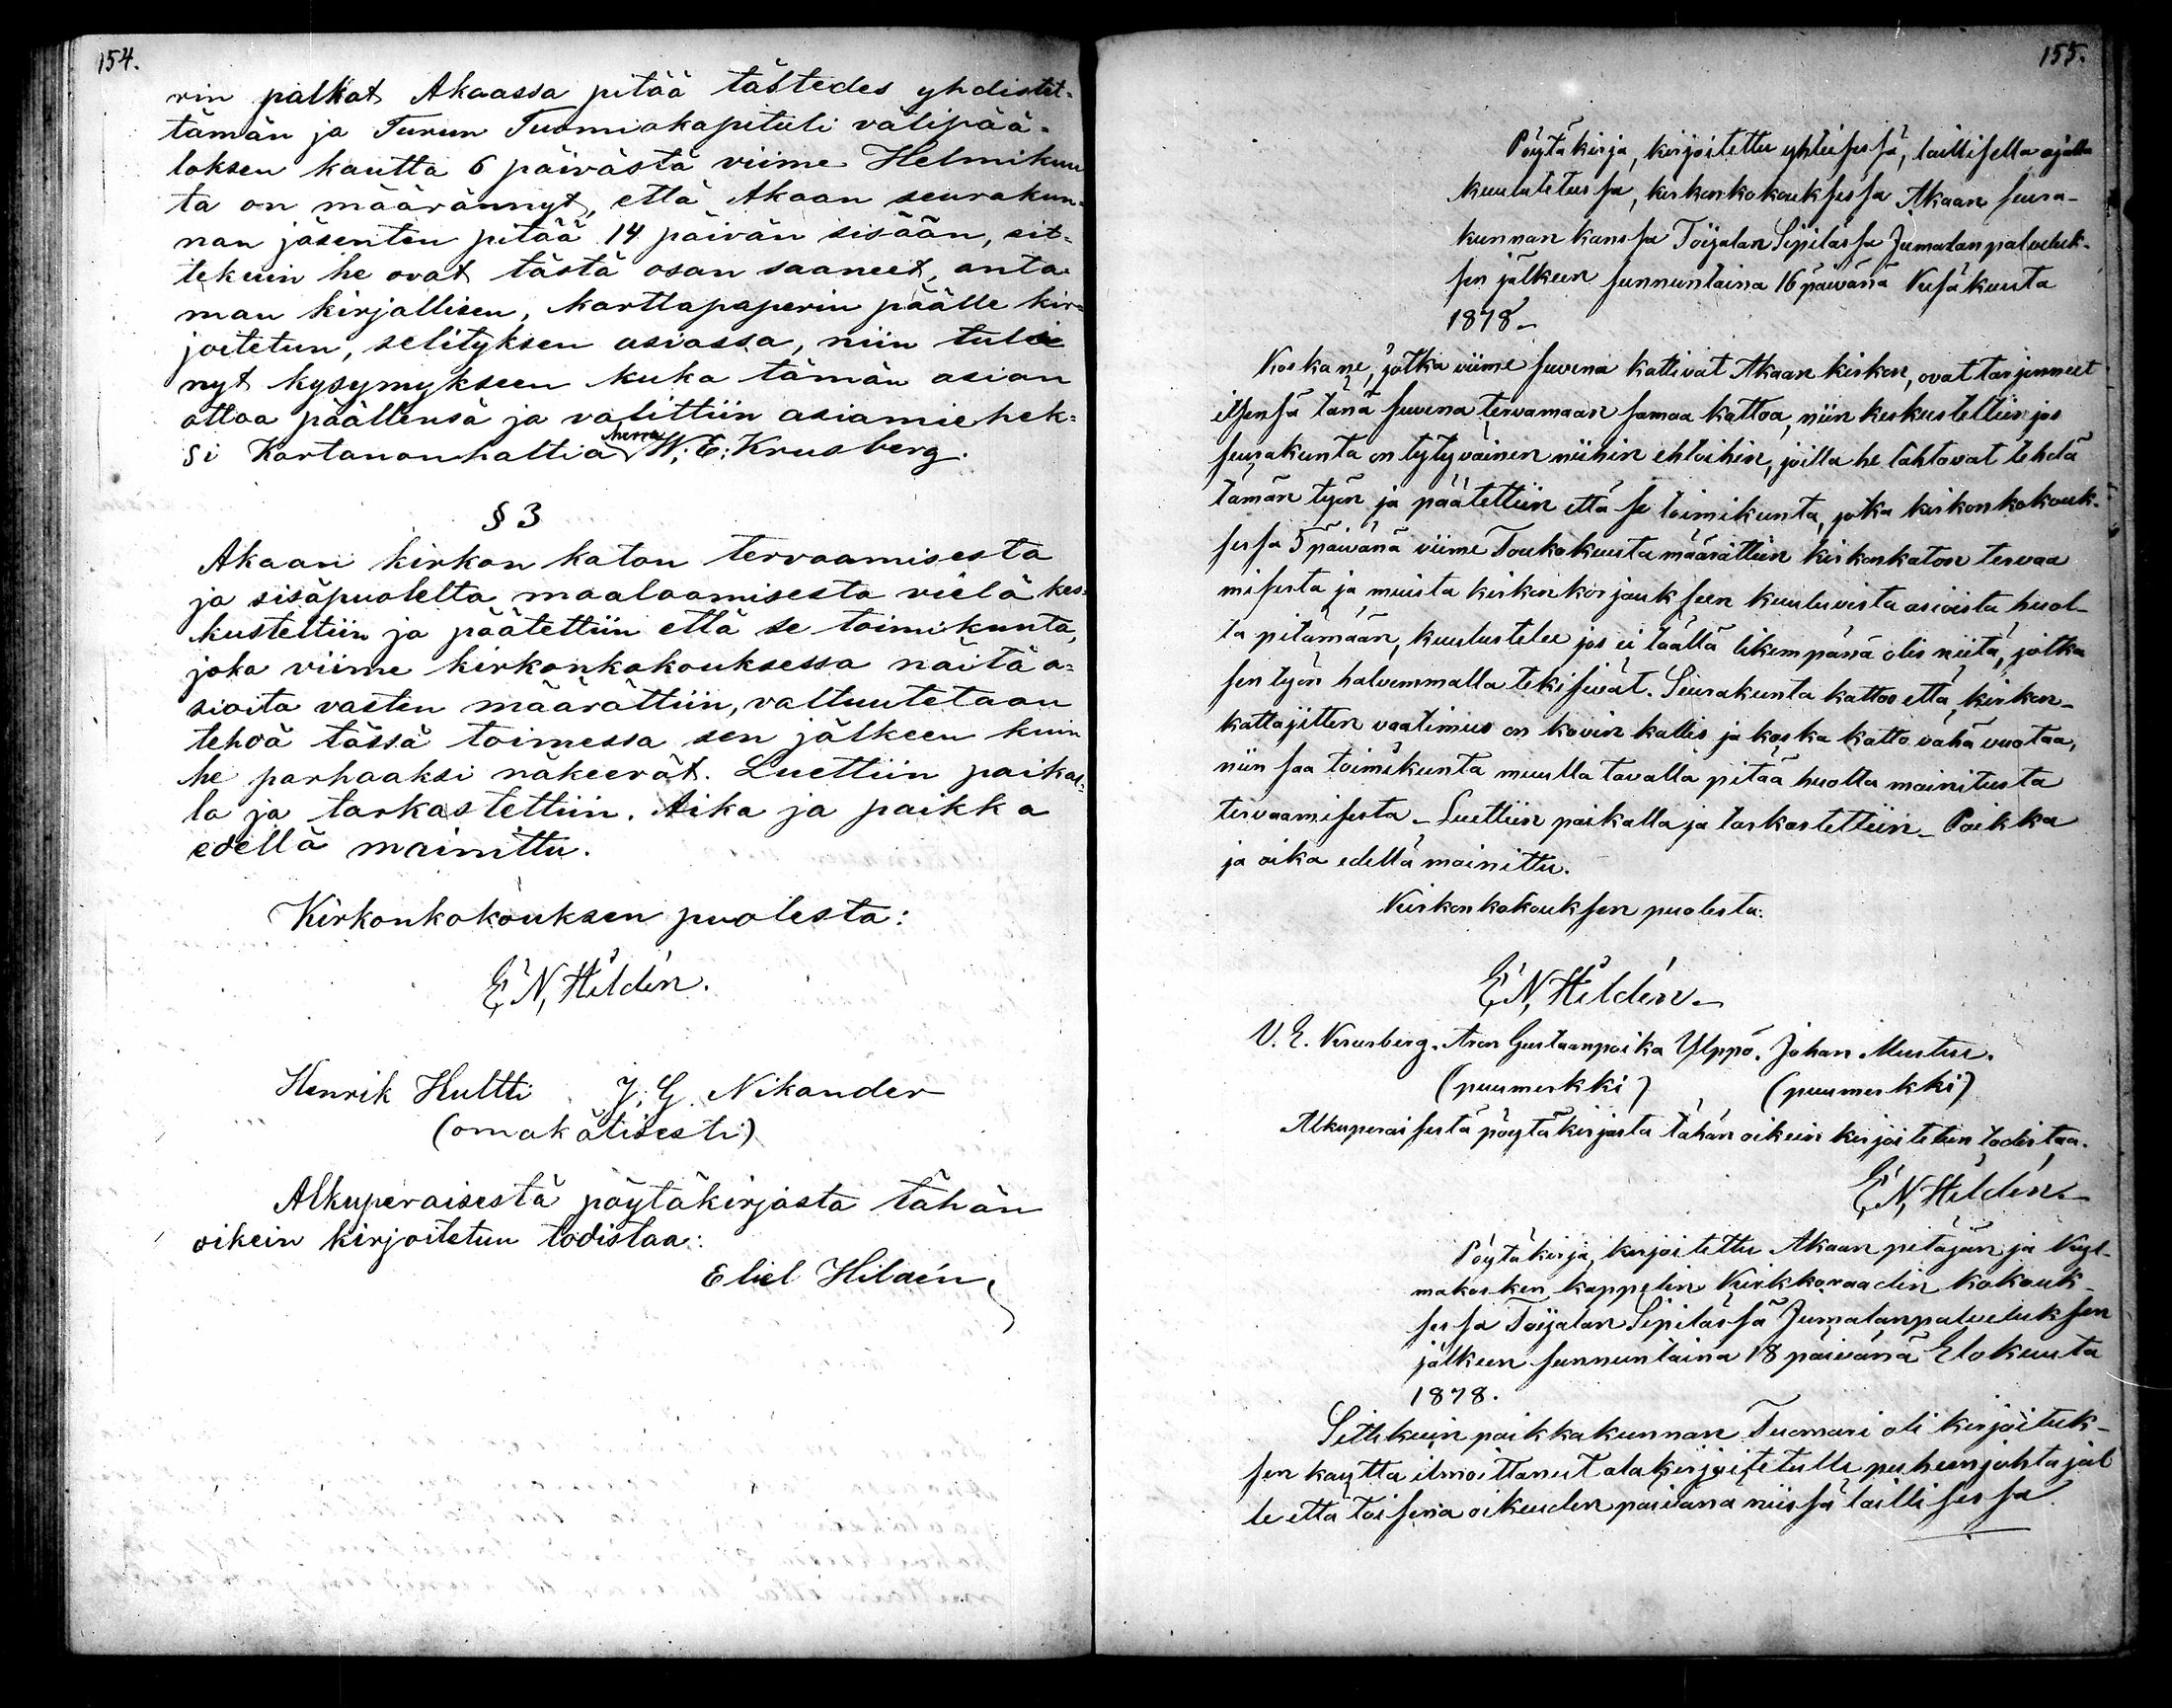 154.
rin palkat Akaassa pitää tästedes yhdistet-
tämän ja Turun Tuomiokapituli välipää-
töksen kautta 6 päivästä viime Helmikuu
ta on määrännyt, että Akaan seurakun-
nan jäsenten pitää 14 päivän sisään, sit-
tekuin he ovat tästä osan saaneet, anta
man kirjallisen, karttapaperin päälle kir-
joitetun, selityksen asiassa, niin tuli
nyt kysymykseen kuka tämän asian
ottaa päällensä ja valittiin asiamiehek-
si Kartanonhaltia herra W. E. Krusberg.
§ 3
Akaan kirkon katon tervaamisesta
ja sisäpuolelta maalaamisesta vielä kes-
kusteltiin ja päätettiin että se toimikunta,
joka viime kirkonkokouksessa näitä a-
sioita vasten määrättiin, valtuutetaan
tehdä tässä toimessa sen jälkeen kuin
he parhaaksi näkeevät. Luettiin paikal-
la ja tarkastettiin. Aika ja paikka
edellä mainittu.
Kirkonkokouksen puolesta:
E. N. Hildén.
Henrik Hultti J. G. Nikander
(omakätisesti)
Alkuperaisestä pöytäkirjasta tähän
oikein kirjoitetun todistaa:
Eliel Hildén
155.
Pöytäkirja, kirjoitettu yhteisessä, laillisella ajalla
kuulutetussa, kirkonkokouksessa Akaan seura-
kunnan kanssa Toijalan Sipilässa Jumalanpalveluk-
sen jälkeen sunnuntaina 16 päivänä Kesäkuuta
1878 -
Koska ne, jotka viime suvena kattivat Akaan kirkon, ovat tarjenneet
itsensä tänä suvena tervamaan samaa kattoa, niin keskusteltiin jos
seurakunta on tytyväinen niihin ehtoihin, joilla he lähtövat tehdä
tämän työn ja päätettiin että se toimikunta, jotka kirkonkokouk-
sessa 5 päivänä viime Toukokuuta määrättiin kirkonkaton tervaa
misesta ja muista kirkonkorjaukseen kuuluvista asioista huol-
ta pitämään, kuulustelee jos ei täällä likempänä olis niitä, jotka
sen työn halvemmalla tekisivät. Seurakunta kattoo että, kirkon-
kattajitten vaatimus on kovin kallis ja koska katto vähä vuotaa,
niin saa toimikunta muulla tavalla pitää huolta mainitusta
tervaamisesta - Luettiin paikalla ja tarkastettiin - Paikka
ja aika edellä mainittu.
Kirkonkokouksen puolesta:
E. N. Hildén -
V. E. Krusberg. Aron Gustaanpoika Ylppö. Johan Mustue.
(puumerkki) (puumerkki)
Alkuperaisestä pöytäkirjasta tähän oikein kirjoitetun todistaa.
E. N. Hildén -
Pöytäkirja, kirjoitettu Akaan pitäjän ja Kyl-
makosken kappelin Kirkkoraadin kokouk-
sessa Toijalan Sipilässä Jumalanpalveluksen
jälkeen sunnuntaina 18 päivänä Elokuuta
1878.
Sittekuin paikkakunnan Tuomari oli kirjoituk-
sen kautta ilmoittanut alakirjoitetulle puheenjohtajal
le että toisena oikeuden päivänä niissä laillisessa